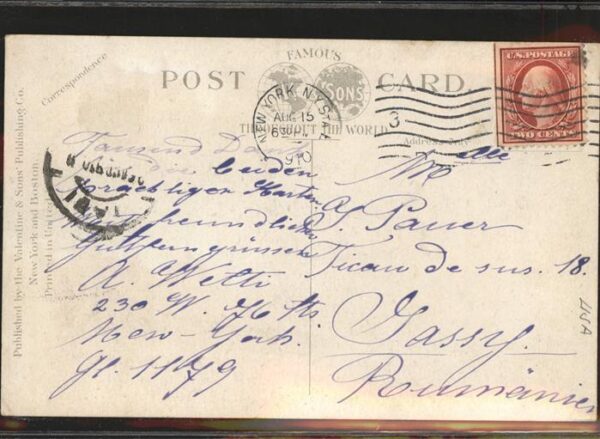 FAMOUS
POST CARD
SONS
THROUGHOUT THE WORLD
Correspondence
Address Only
Published by the Valentine & Sons' Publishing Co.
New York and Boston.
Printed in United
U.S. POSTAGE
TWO CENTS
NEW YORK, N.Y. STA.
AUG 15
1910
3
IASI
Tausend Dank
die beiden
prachtigen Karten
Mit freundlichen
A. Welti
230 W. 76 th.
New-York.
gl. 1179
Mlle
S. Pauer
Ticau de sus. 18.
Jassy.
Rumänien
USA